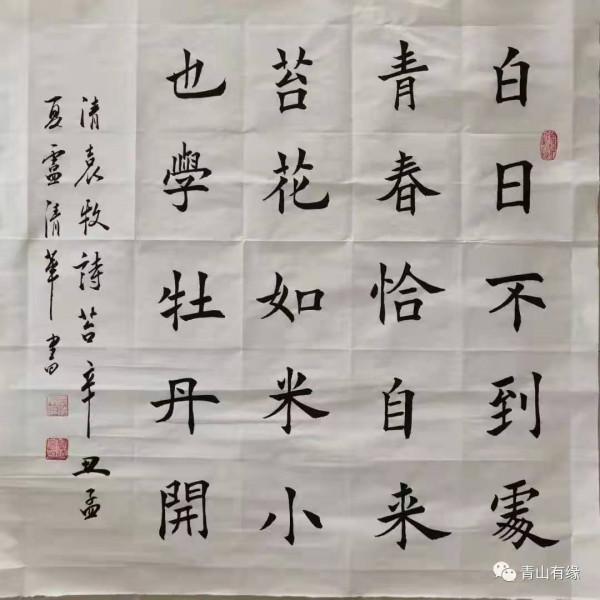 白日不到處
青春恰自来
苔花如米小
也學牡丹開
清袁牧詩苔辛丑孟
夏盧清華書
青山有缘